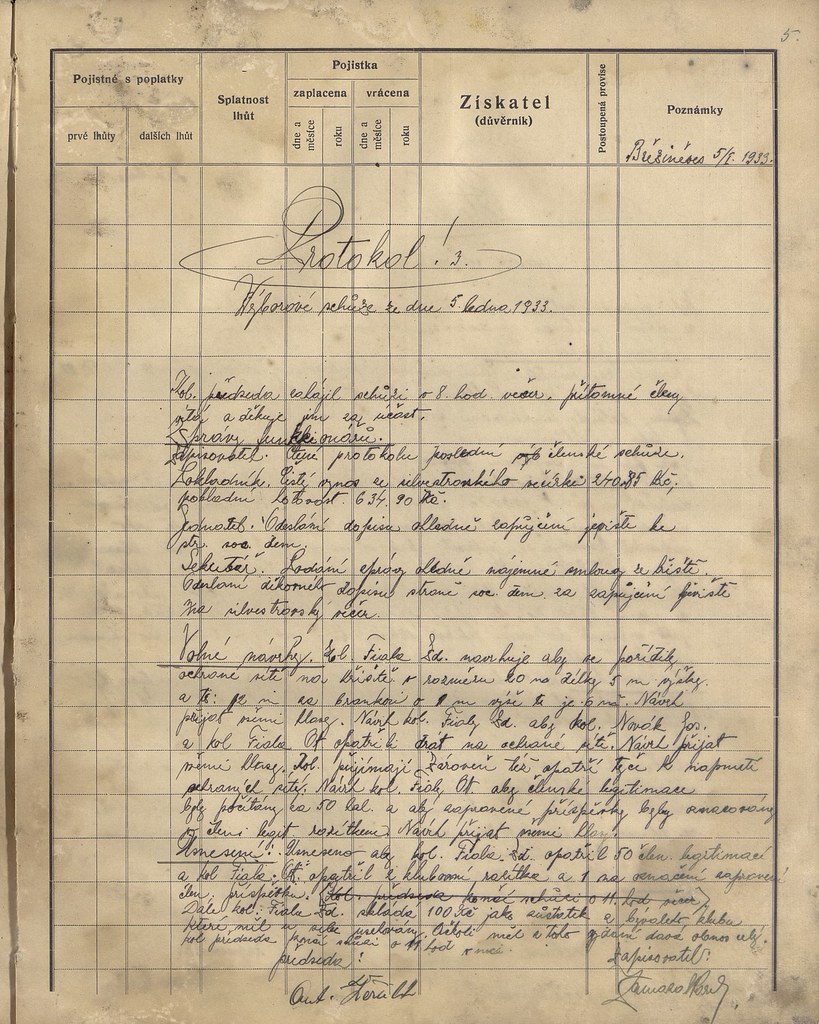 5.
Pojistné s poplatky
Splatnost lhůt
Pojistka
Získatel
(důvěrník)
Postoupená provise
Poznámky
prvé lhůty
dalších lhůt
zaplacena
vrácena
dne a měsíce
roku
dne a měsíce
roku
Břežiněves 5/I. 1933.
Protokol! 3.
Výborové schůze ze dne 5. ledna 1933.
Kol. předseda zahájil schůzi o 8. hod. večer, přítomné členy
vítá a děkuje jim za účast.
Zprávy funkcionářů.
Zapisovatel. Čtení protokolu poslední členské schůze.
Pokladník. Čistý výnos ze silvestrovského večírku 240.85 Kč,
pokladní hotovost. 634.90 Kč.
Jednatel. Odeslání dopisu ohledně zapůjčení jeviště ke
str. soc. dem.
Sekretář. Podání zprávy ohledně nájemné smlouvy ze hřiště.
Odeslání děkovného dopisu straně soc. dem. za zapůjčení jeviště
na silvestrovský večer.
Volné návrhy. Kol. Fiala Ed. navrhuje aby se pořídily
ochrané sítě na hřiště v rozměru 20 m délky 5 m výšky.
a to: 12 m za brankou o 1 m výše to je 6 m. Návrh
přijat všemi hlasy. Návrh kol. Fialy Ed. aby kol. Novák Jos.
a kol Fiala Ot opatřili drát na ochrané sítě. Návrh přijat
všemi hlasy. Kol. přijímají zároveň též opatří tyče k napnutí
ochraných sítí. Návrh kol. Fialy Ot. aby členské legitimace
byly počítány za 50 hal. a aby zapravené příspěvky byly označovány
v členské legit. razítkem. Návrh přijat všemi hlasy.
Usnesení: Usneseno aby kol. Fiala Ed. opatřil 50 člen. legitimací
a kol Fiala. Ot. opatřil 2 klubovní razítka a 1 na označení zapravení
člen. příspěvku. Kol. předseda končí schůzi o 11. hod večer
Dále kol. Fiala Ed. skládá 100 Kč jako zůstatek z klubu
které měl u sebe
kol předseda končí schůzi o 11 hod v noci.
předseda:
zapisovatel:
Ant.